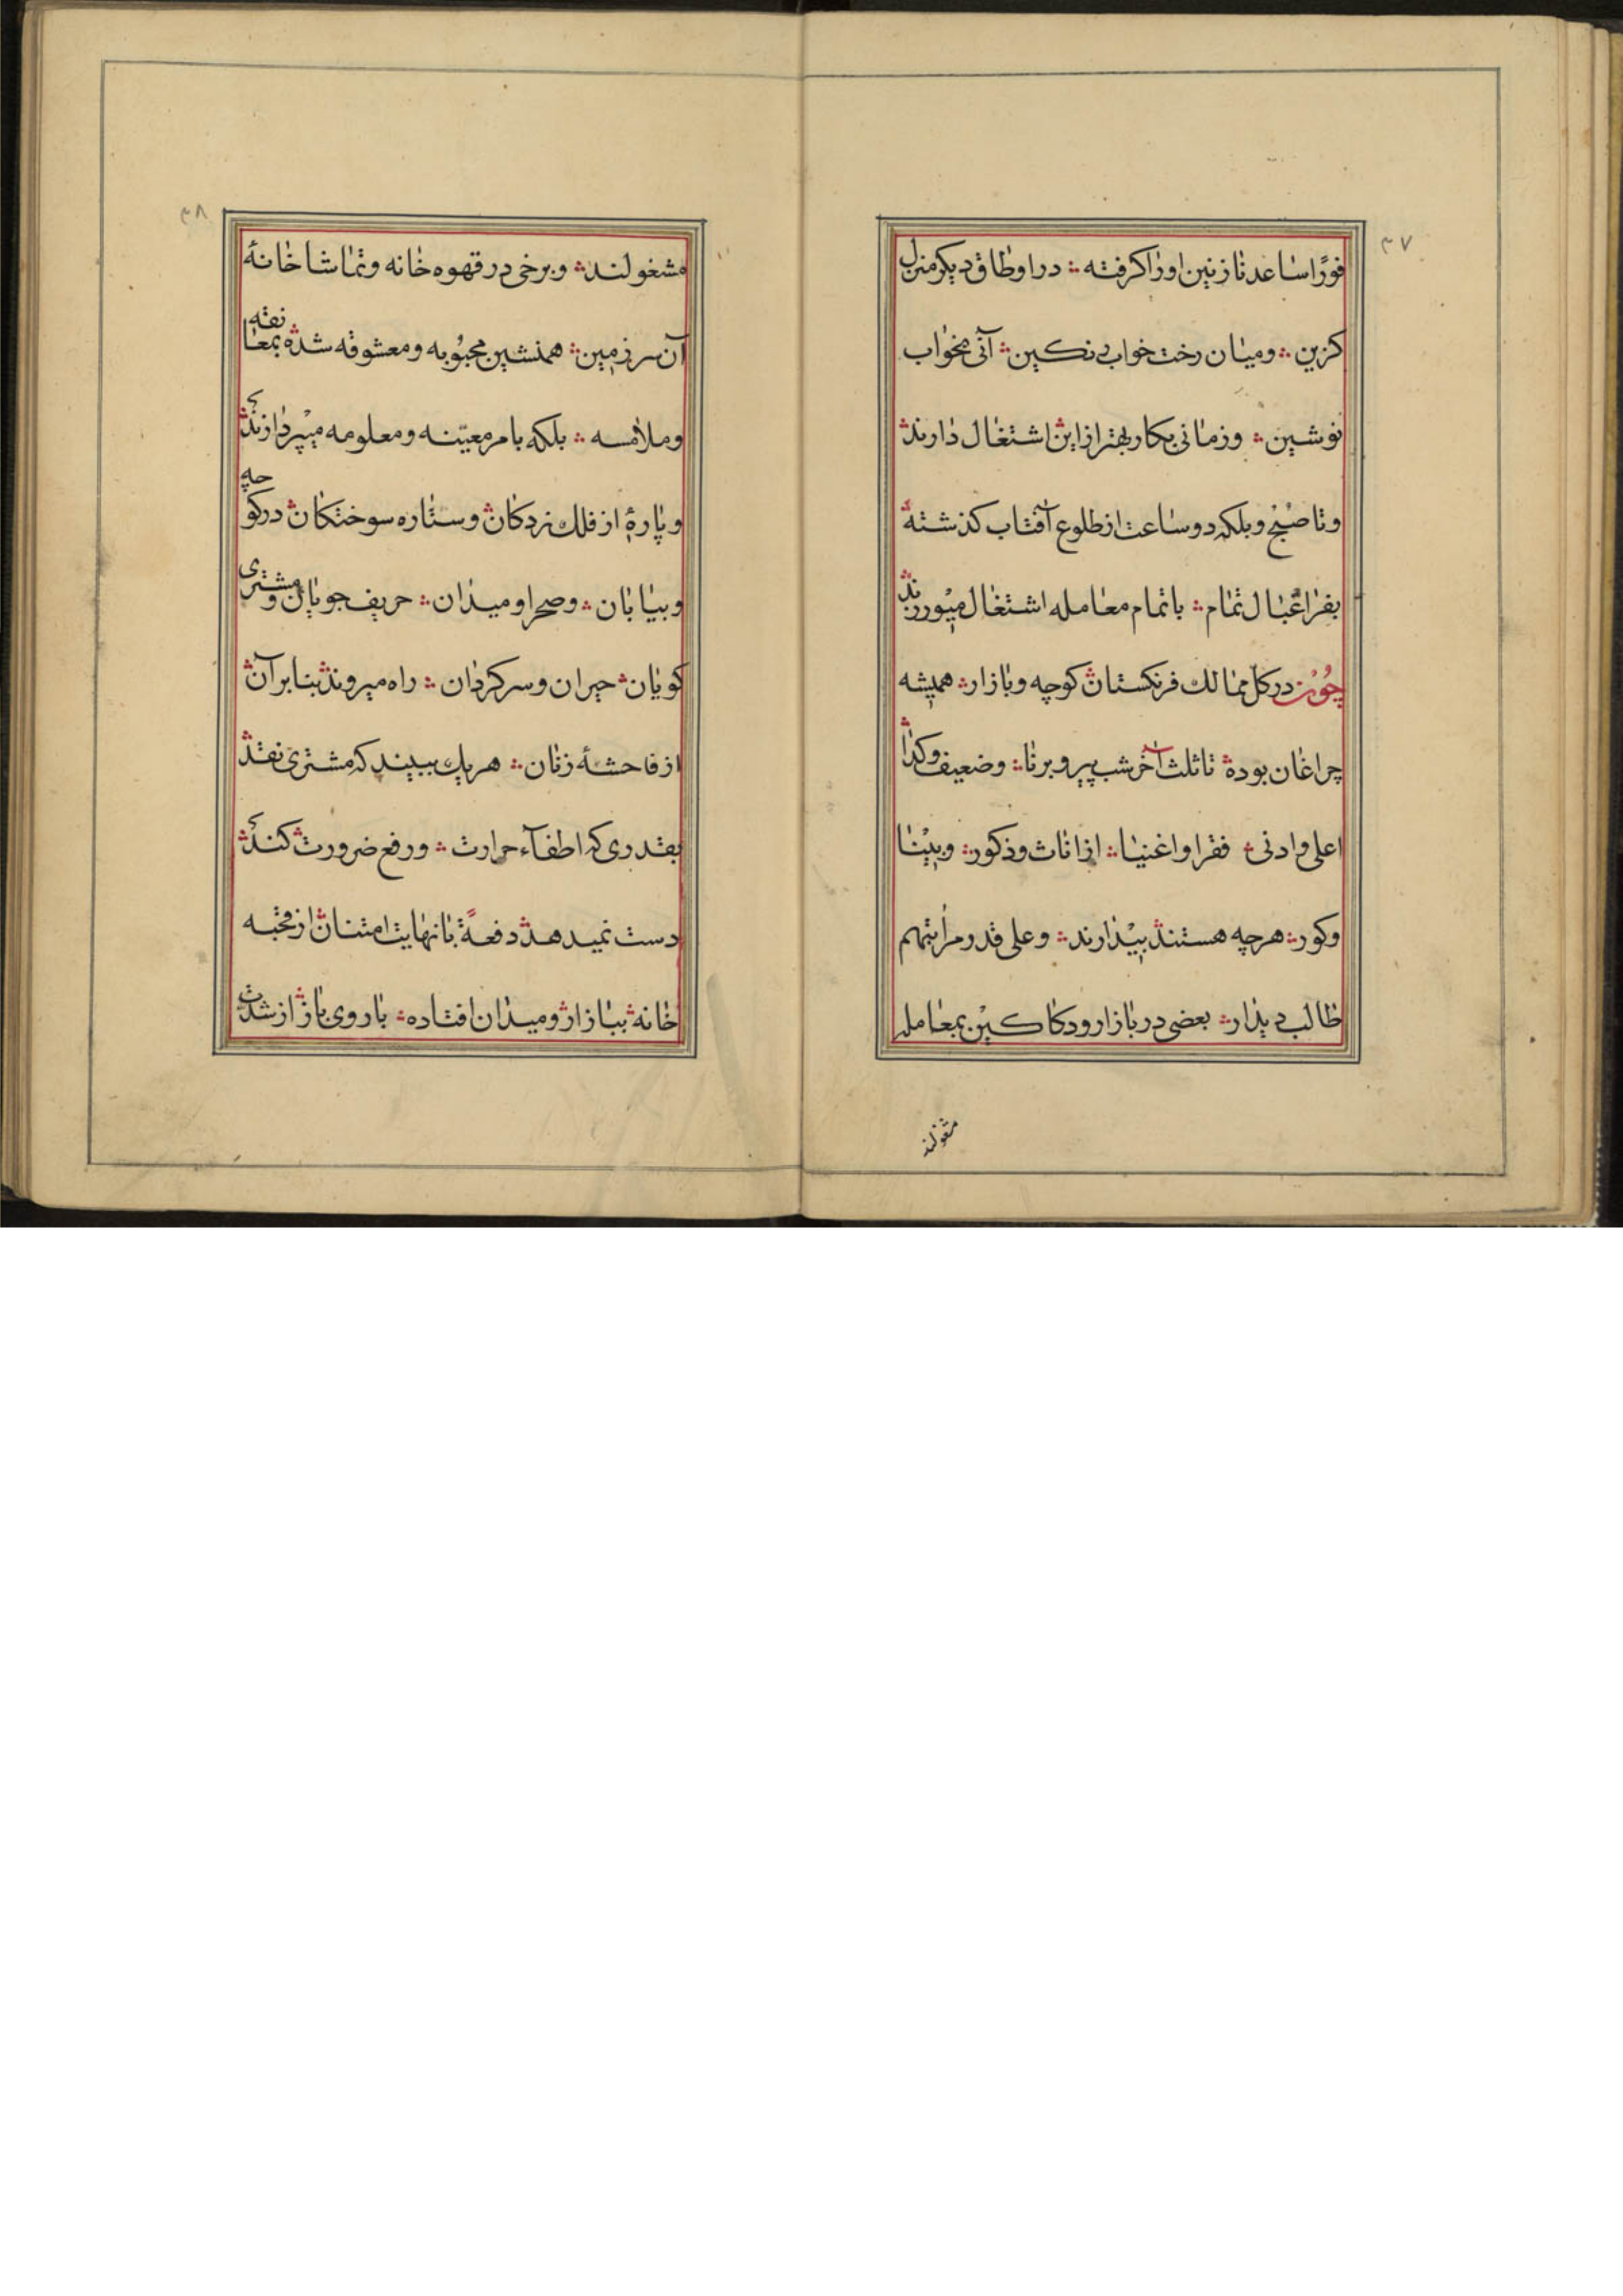 ٣٧
فورًا ساعد نازنین او را کرفته ؞ در اوطاق دیکر منزل
کزین ؞ ومیان رخت خوابی نکین ؞ آنی بخواب
نوشین ؞ وزمانی بکار بهتر از این ؞ اشتغال دارند ؞
وتا صبح وبلکه دو ساعت از طلوع آفتاب کذشته ؞
بفراغبال تمام ؞ باتمام معامله اشتغال میورزند ؞
چون در کل ممالك فرنکستان ؞ کوچه وبازار ؞ همیشه
چراغان بوده ؞ تا ثلث آخر شب پیر وبرنا ؞ وضعیف وکدا ؞
اعلی وادنی ؞ فقرا واغنیا ؞ از اناث وذکور ؞ وبینا
وکور ؞ هرچه هستند ؞ بیدارند ؞ وعلی قدر مراتبهم
طالب دیدار ؞ بعضی در بازار ودکاکین بمعامله
مشغولند
٣٨
مشغولند ؞ وبرخی در قهوه خانه وتماشا خانهٔ
آن سر زمین ؞ همنشین محبوبه ومعشوقه شده ؞ بمعانقه
وملامسه ؞ بلکه بامر معیّنه ومعلومه میپردازند ؞
وپارهٔ از فلك زدکان ؞ وستاره سوختکان ؞ در کوچه
وبیابان ؞ وصحرا ومیدان ؞ حریف جویان ومشتری
کویان ؞ حیران وسرکردان ؞ راه میروند ؞ بنابر آن ؞
از فاحشهٔ زنان ؞ هر یك ببیند که مشتری نقد ؞
بقدری که اطفآء حرارت ؞ ورفع ضرورت کند ؞
دست نمیدهد ؞ دفعةً بانهایت امتنان ؞ از قحبه
خانه ؞ ببازار ؞ ومیدان افتاده ؞ باروی باز ؞ از شدّت